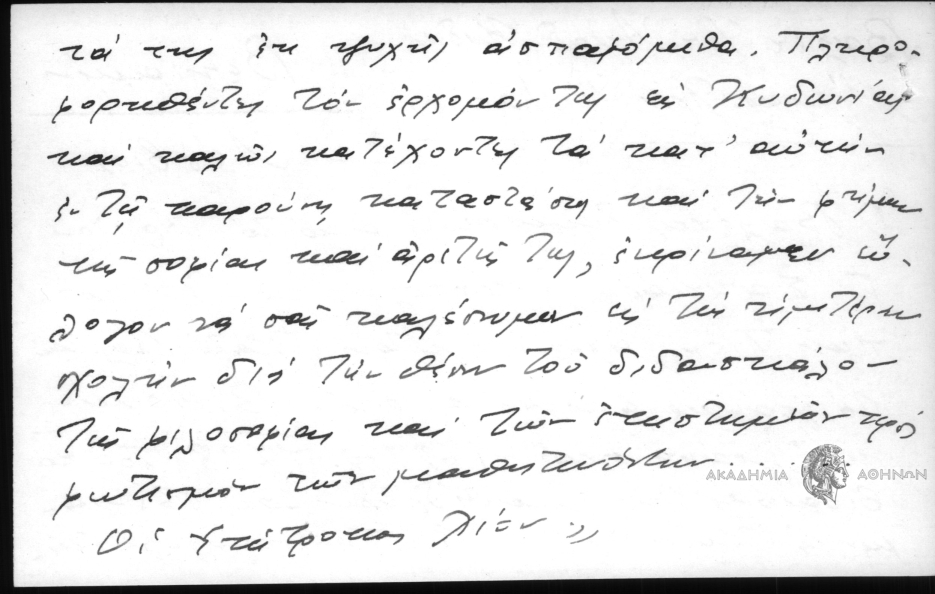 τά της ἐκ ψυχῆς ἀσπαζόμεθα. Πληρο-
φορηθέντες τόν ἐρχομόν της εἰς Κυδωνίας
καί καλῶς κατέχοντες τά κατ' αὐτήν
ἐν τῇ παρούσῃ καταστάσει καί τήν φήμην
τῆς σοφίας καί ἀρετῆς της, ἐκρίναμεν εὔ-
λογον νά σᾶς καλέσωμεν εἰς τήν ἡμετέραν
σχολήν διά τήν θέσιν τοῦ διδασκάλου
τῆς φιλοσοφίας καί τῶν ἐπιστημῶν πρός
φωτισμόν τῶν μαθητευόντων . . . . .
Οἱ ἐπίτροποι Χίου „
ΑΚΑΔΗΜΙΑ ΑΘΗΝΩΝ